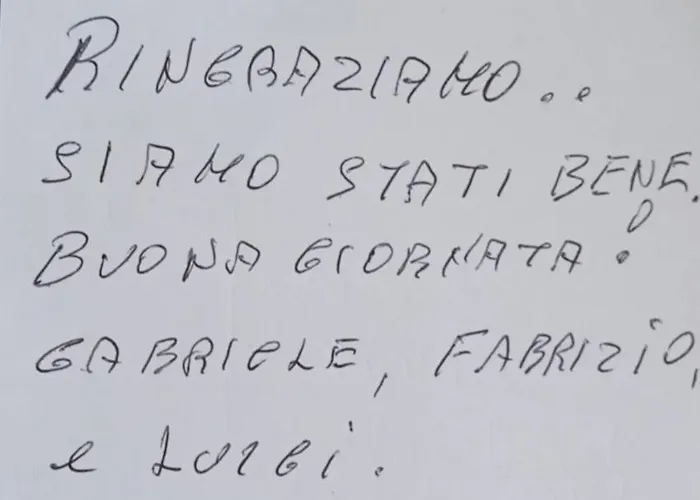 RINGRAZIAMO..
SIAMO STATI BENE.
BUONA GIORNATA!
GABRIELE, FABRIZIO,
e LUIGI.